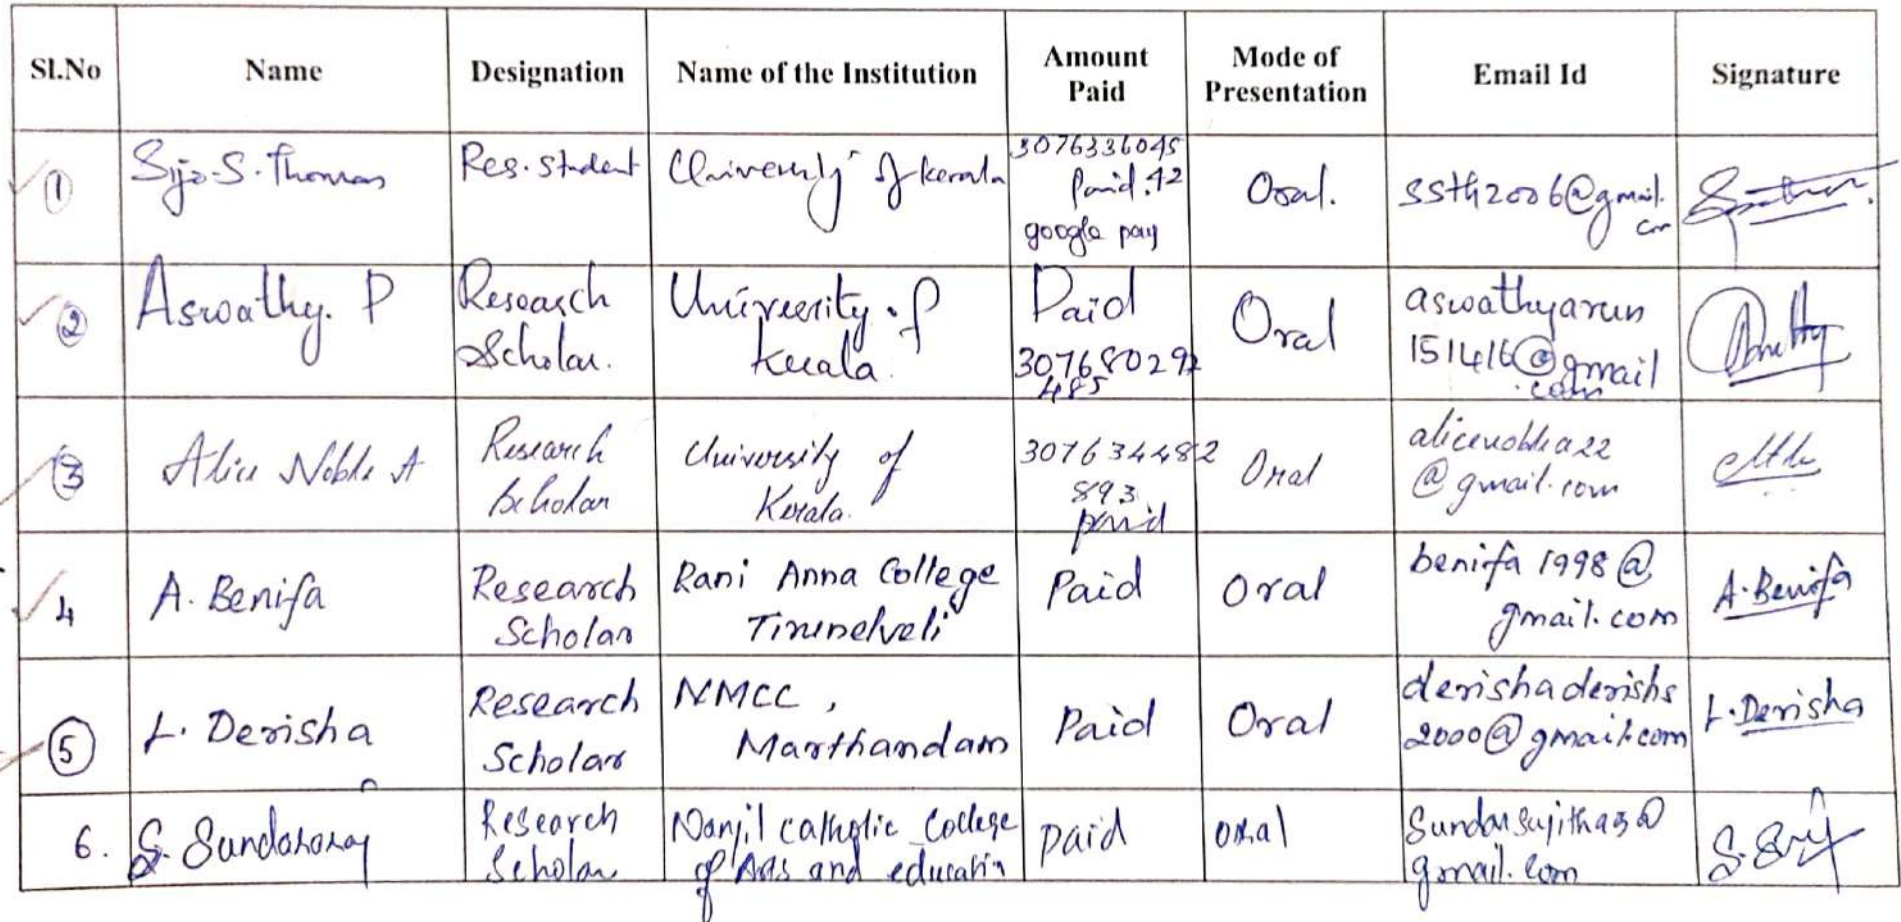 Sl.No Name Designation Name of the Institution Amount Paid Mode of Presentation Email Id Signature
1 Sijo.S.Thomas Res.Student University of kerala 3076336045 Paid.42 google pay Oral. ssth2006@gmail.com
2 Aswathy. P Research Scholar. University of Kerala. Paid 307680292 485 Oral aswathyarun 151416@gmail.com
3 Alice Noble A Research Scholar University of Kerala. 307634482 893 paid Oral alicenoblea22 @gmail.com
4 A. Benifa Research Scholar Rani Anna College Tirunelveli Paid Oral benifa 1998@ gmail.com A.Benifa
5 L. Derisha Research Scholar NMCC, Marthandam Paid Oral derishaderishs 2000@gmail.com L.Derisha
6. S. Sundararaj Research Scholar Nanjil catholic College of Arts and education paid oral gmail.com